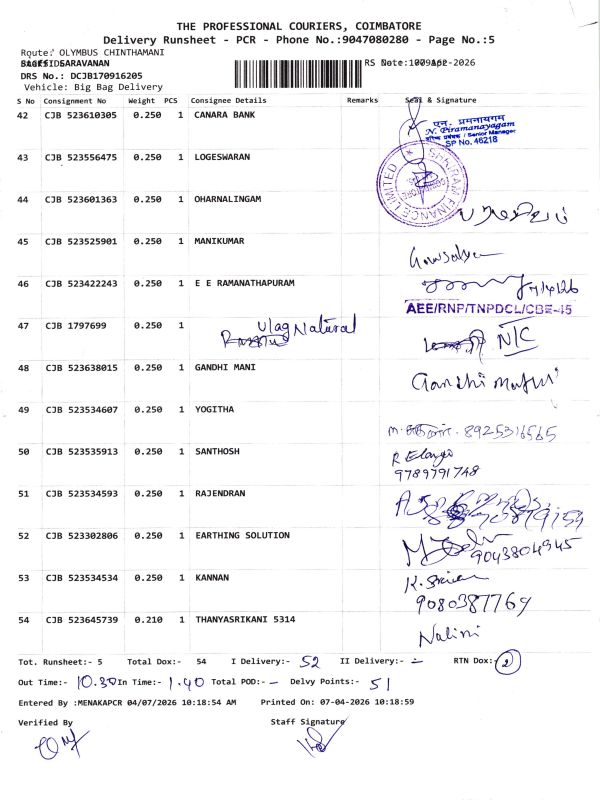 THE PROFESSIONAL COURIERS, COIMBATORE
Delivery Runsheet - PCR - Phone No.:9047080280 - Page No.:5
Route: OLYMBUS CHINTHAMANI
SARAVANAN
DRS No.: DCJB170916205
Vehicle: Big Bag Delivery
S No Consignment No Weight PCS Consignee Details Remarks Seal & Signature
42 CJB 523610305 0.250 1 CANARA BANK
एन. प्रमनायगम
N. Piramanayagam
वरिष्ठ प्रबंधक / Senior Manager
SP No. 46218
43 CJB 523556475 0.250 1 LOGESWARAN
SHRIRAM FINANCE LIMITED
44 CJB 523601363 0.250 1 OHARNALINGAM
45 CJB 523525901 0.250 1 MANIKUMAR
Gowsalya
46 CJB 523422243 0.250 1 E E RAMANATHAPURAM
7/4/26
AEE/RNP/TNPDCL/CBE-45
47 CJB 1797699 0.250 1 Vlag Natural N/C
48 CJB 523638015 0.250 1 GANDHI MANI
Gandhi Mathi
49 CJB 523534607 0.250 1 YOGITHA
8925316565
50 CJB 523535913 0.250 1 SANTHOSH
R Elango
9789791748
51 CJB 523534593 0.250 1 RAJENDRAN
52 CJB 523302806 0.250 1 EARTHING SOLUTION
9043804945
53 CJB 523534534 0.250 1 KANNAN
9080387769
54 CJB 523645739 0.210 1 THANYASRIKANI 5314
Nalini
Tot. Runsheet:- 5 Total Dox:- 54 I Delivery:- 52 II Delivery:- - RTN Dox:- 2
Out Time:- 10.30 In Time:- 1.40 Total POD:- - Delvy Points:- 51
Entered By :MENAKAPCR 04/07/2026 10:18:54 AM Printed On: 07-04-2026 10:18:59
Verified By Staff Signature